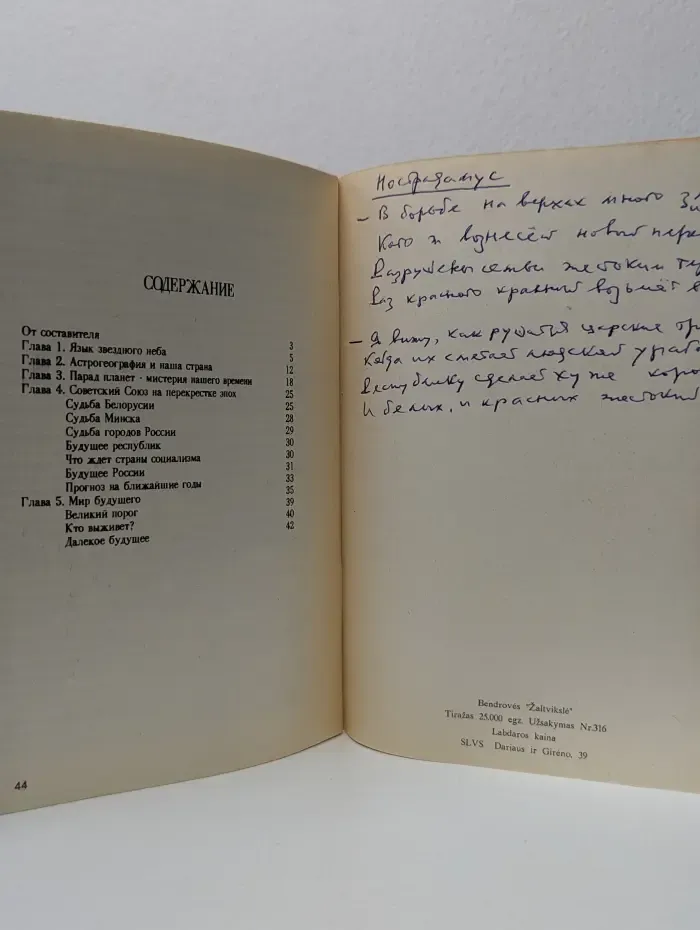 СОДЕРЖАНИЕ
От составителя 3
Глава 1. Язык звездного неба 5
Глава 2. Астрогеография и наша страна 12
Глава 3. Парад планет - мистерия нашего времени 18
Глава 4. Советский Союз на перекрестке эпох 25
Судьба Белорусии 25
Судьба Минска 28
Судьба городов России 29
Будущее республик 30
Что ждет страны социализма 30
Будущее России 31
Прогноз на ближайшие годы 33
Глава 5. Мир будущего 35
Великий порог 39
Кто выживет? 40
Далекое будущее 42
44
Нострадамус
– В борьбе на верхах много
Кого ж вознесёт новый
Разрушены семьи жестоким
Раз красного красный возьмёт в
– Я вижу, как рушатся царские
Когда их сметает людской
Республику сделает хуже
И белых, и красных жестокий
Bendrovės "Žaltvikslė"
Tiražas 25.000 egz. Užsakymas Nr.316
Labdaros kaina
SLVS Dariaus ir Girėno, 39